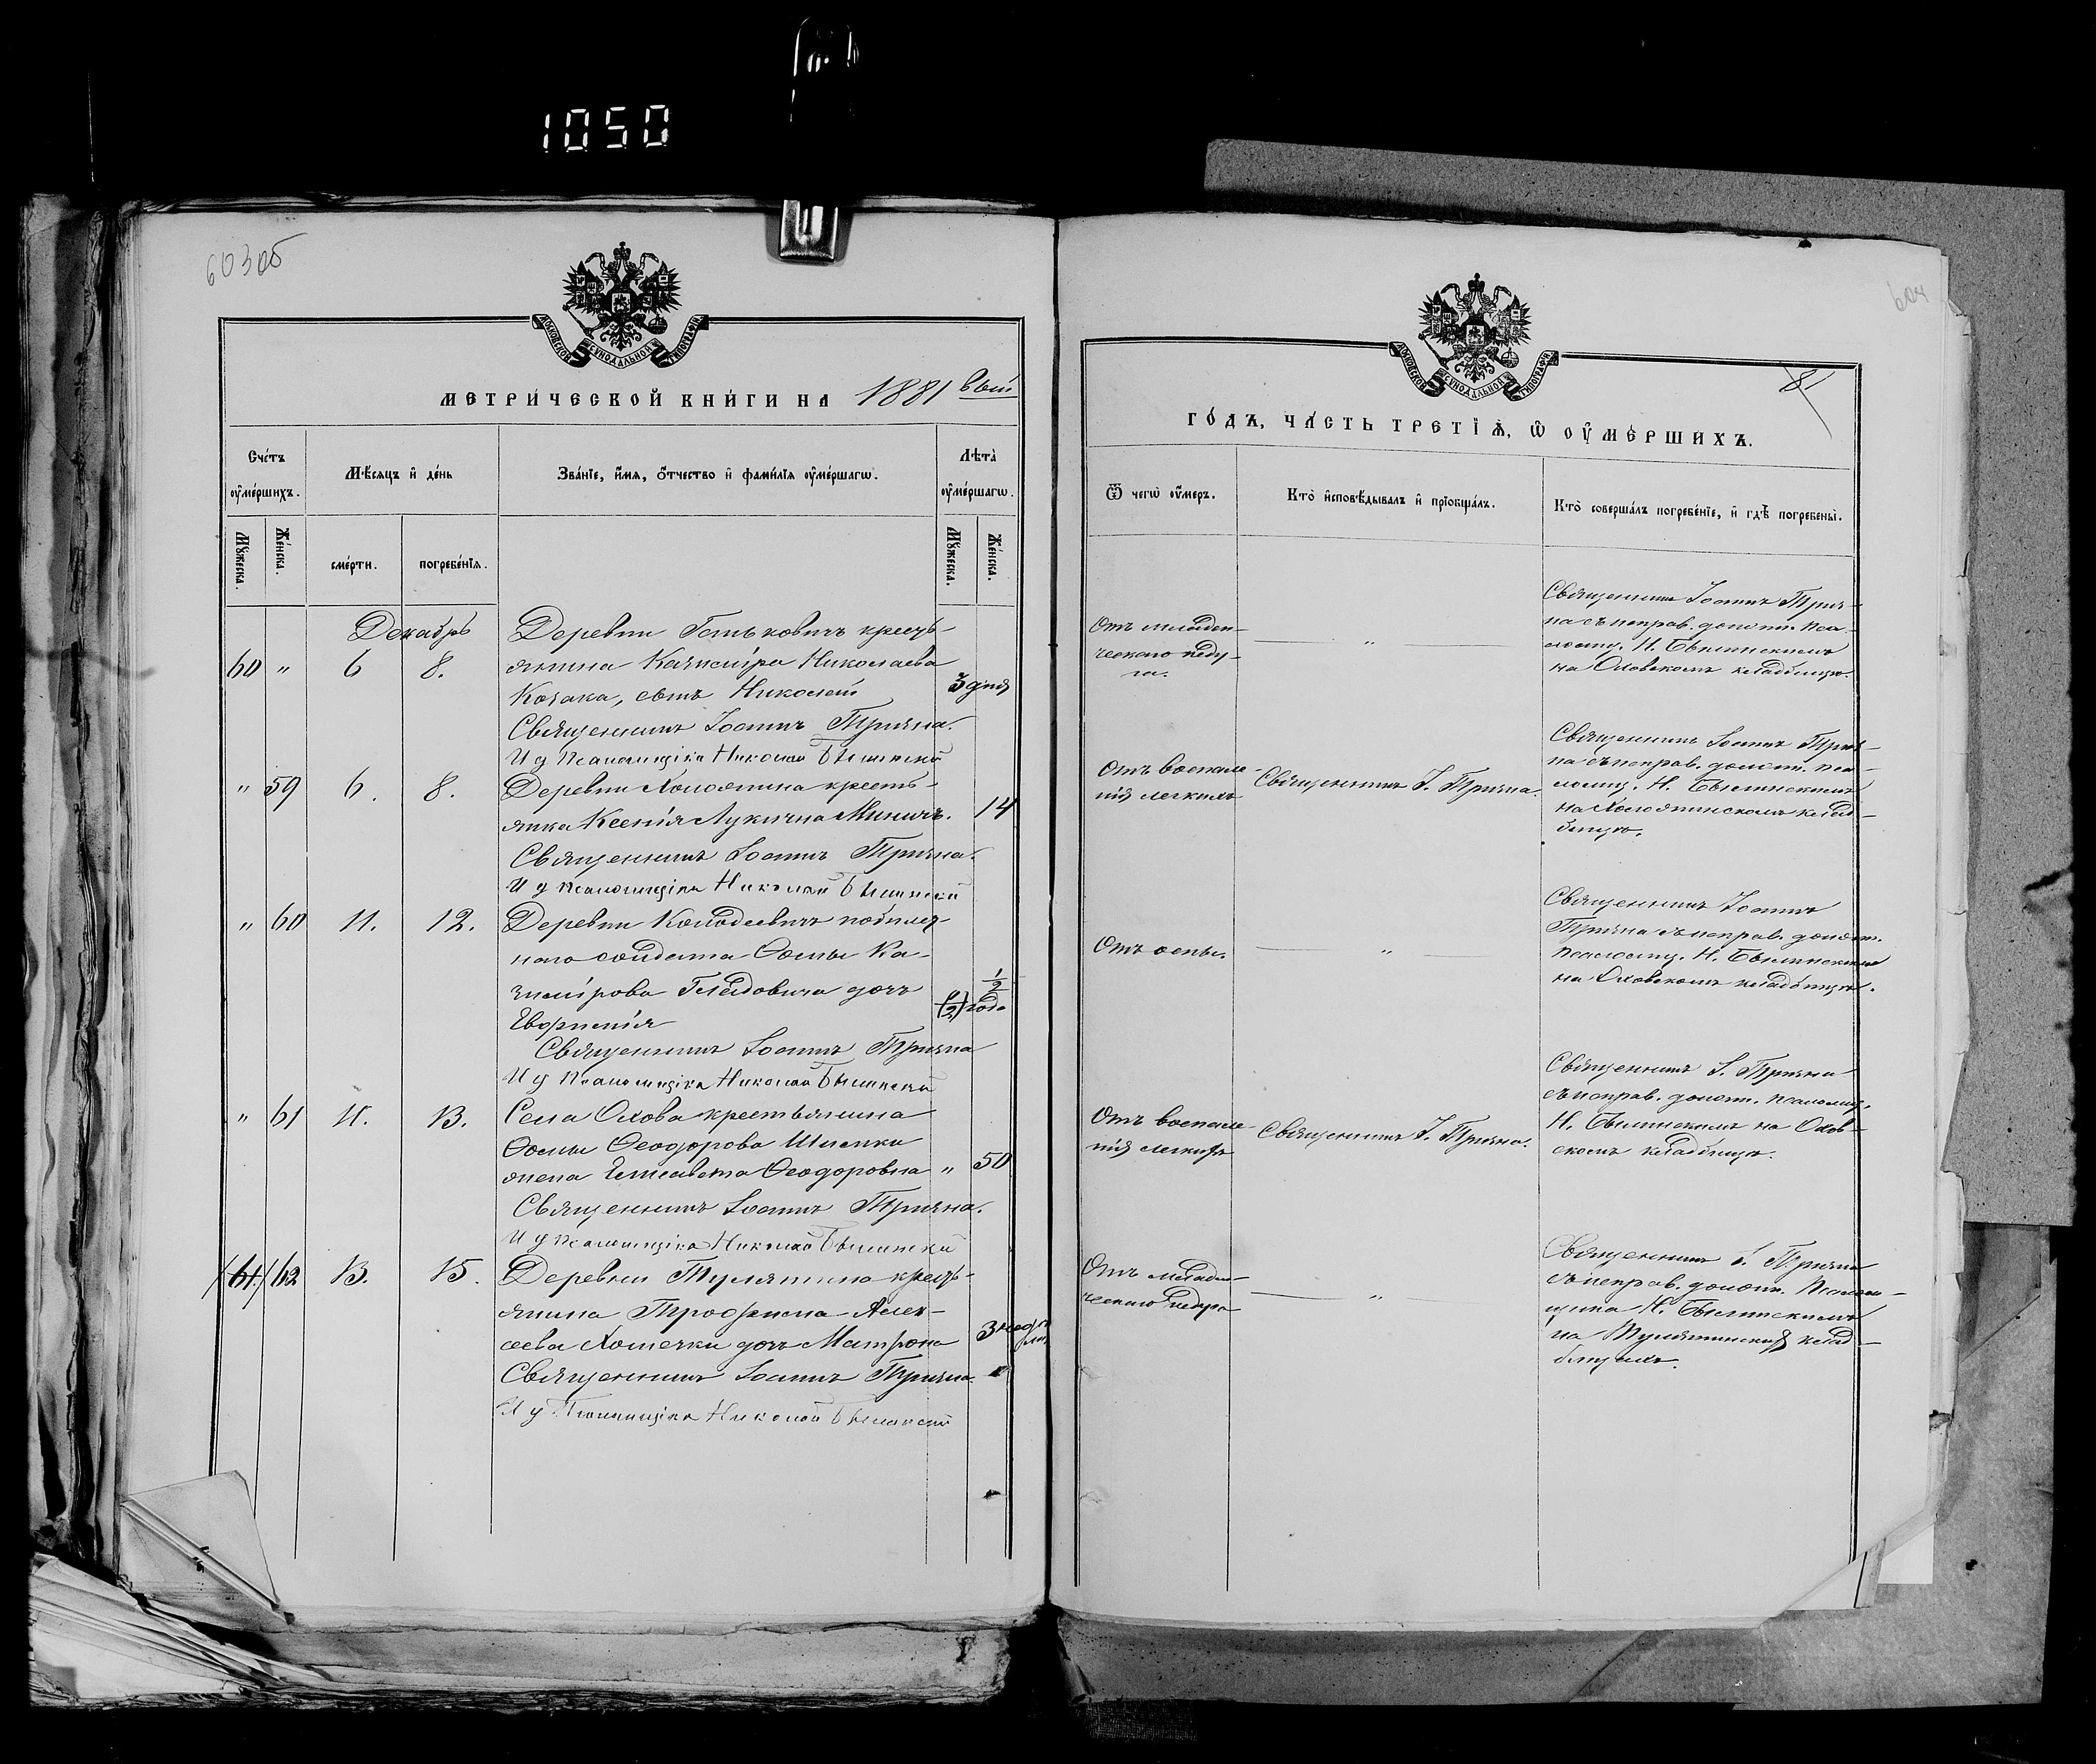 1050
603об
МОСКОВСКОЙ СУНОДАЛЬНОЙ ТИПОГРАФІИ
МЕТРИ́ЧЕСКОЙ КНИ́ГИ НА 1881 вый
Сче́тъ ᲂу҆ме́ршихъ.
Мѣ́сяцъ и҆ де́нь
Зва́нїе, и҆́мя, ѻ҆́тчество и҆ фами́лїя ᲂу҆ме́ршагѡ.
Лѣ́та ᲂу҆ме́ршагѡ.
Мꙋ́жеска.
Же́нска.
сме́рти.
погребе́нїя.
Мꙋ́жеска.
Же́нска.
Декабрь
60 " 6 8.
Деревни Гетьковичъ кресть-
янина Казиміра Николаева
Козака, сынъ Николай 3 дня
Священникъ Іоаннъ Тризна.
И д Псаломщіка Николай Былинскій
" 59 6. 8.
Деревни Холоятина кресть-
янка Ксенія Лукична Миничъ. 14
Священникъ Іоаннъ Тризна.
И д Псаломщіка Николай Былинскій
" 60 11. 12.
Деревни Колодеевичъ
наго солдата Ѳомы Ка-
зимірова Гладовича дочь 1/2
Евфимія года
Священникъ Іоаннъ Тризна
И д Псаломщіка Николай Былинскій
" 61 11. 13.
Села Охова крестьянина
Ѳомы Ѳеодорова Шишки
жена Елисавета Ѳеодоровна " 50
Священникъ Іоаннъ Тризна.
И д Псаломщіка Николай Былинскій
(61.) 62 13. 15.
Деревни Тулятина кресть-
янина Трофима Алек-
сеева Хомечки дочь Матрона 3 недели
Священникъ Іоаннъ Тризна.
И д Псаломщіка Николай Былинскій
604
МОСКОВСКОЙ СУНОДАЛЬНОЙ ТИПОГРАФІИ
81
ГО́ДЪ, ЧА́СТЬ ТРЕТІѦ, Ѡ ОУ҆МЕ́РШИХЪ.
Ѿ чегѡ̀ ᲂу҆́меръ.
Кто̀ и҆сповѣ́дывалъ и҆ прїобща́лъ.
Кто̀ соверша́лъ погребе́нїе, и҆ гдѣ̀ погребены̀.
Отъ младен-
ческаго неду-
га.
"
Священникъ Іоаннъ Триз-
на съ исправ. должн. пса-
ломщ. Н. Былинскимъ
на Оховскомъ кладбищѣ.
Отъ воспале-
нія легкихъ
Священникъ І. Тризна.
Священникъ Іоаннъ Триз-
на съ исправ. должн. пса-
ломщ. Н. Былинскимъ
на Холоятинскомъ клад-
бищѣ.
Отъ оспы.
"
Священникъ Іоаннъ
Тризна съ исправ. должн.
псаломщ. Н. Былинскимъ
на Оховскомъ кладбищѣ.
Отъ воспале-
нія легкихъ
Священникъ І. Тризна.
Священникъ І. Тризна
съ исправ. должн. псаломщ.
Н. Былинскимъ на Охов-
скомъ кладбищѣ.
Отъ младен-
ческаго недуга
"
Священникъ І. Тризна
съ исправ. должн. Псалом-
щика Н. Былинскимъ
на Тулятинскомъ клад-
бищѣ.